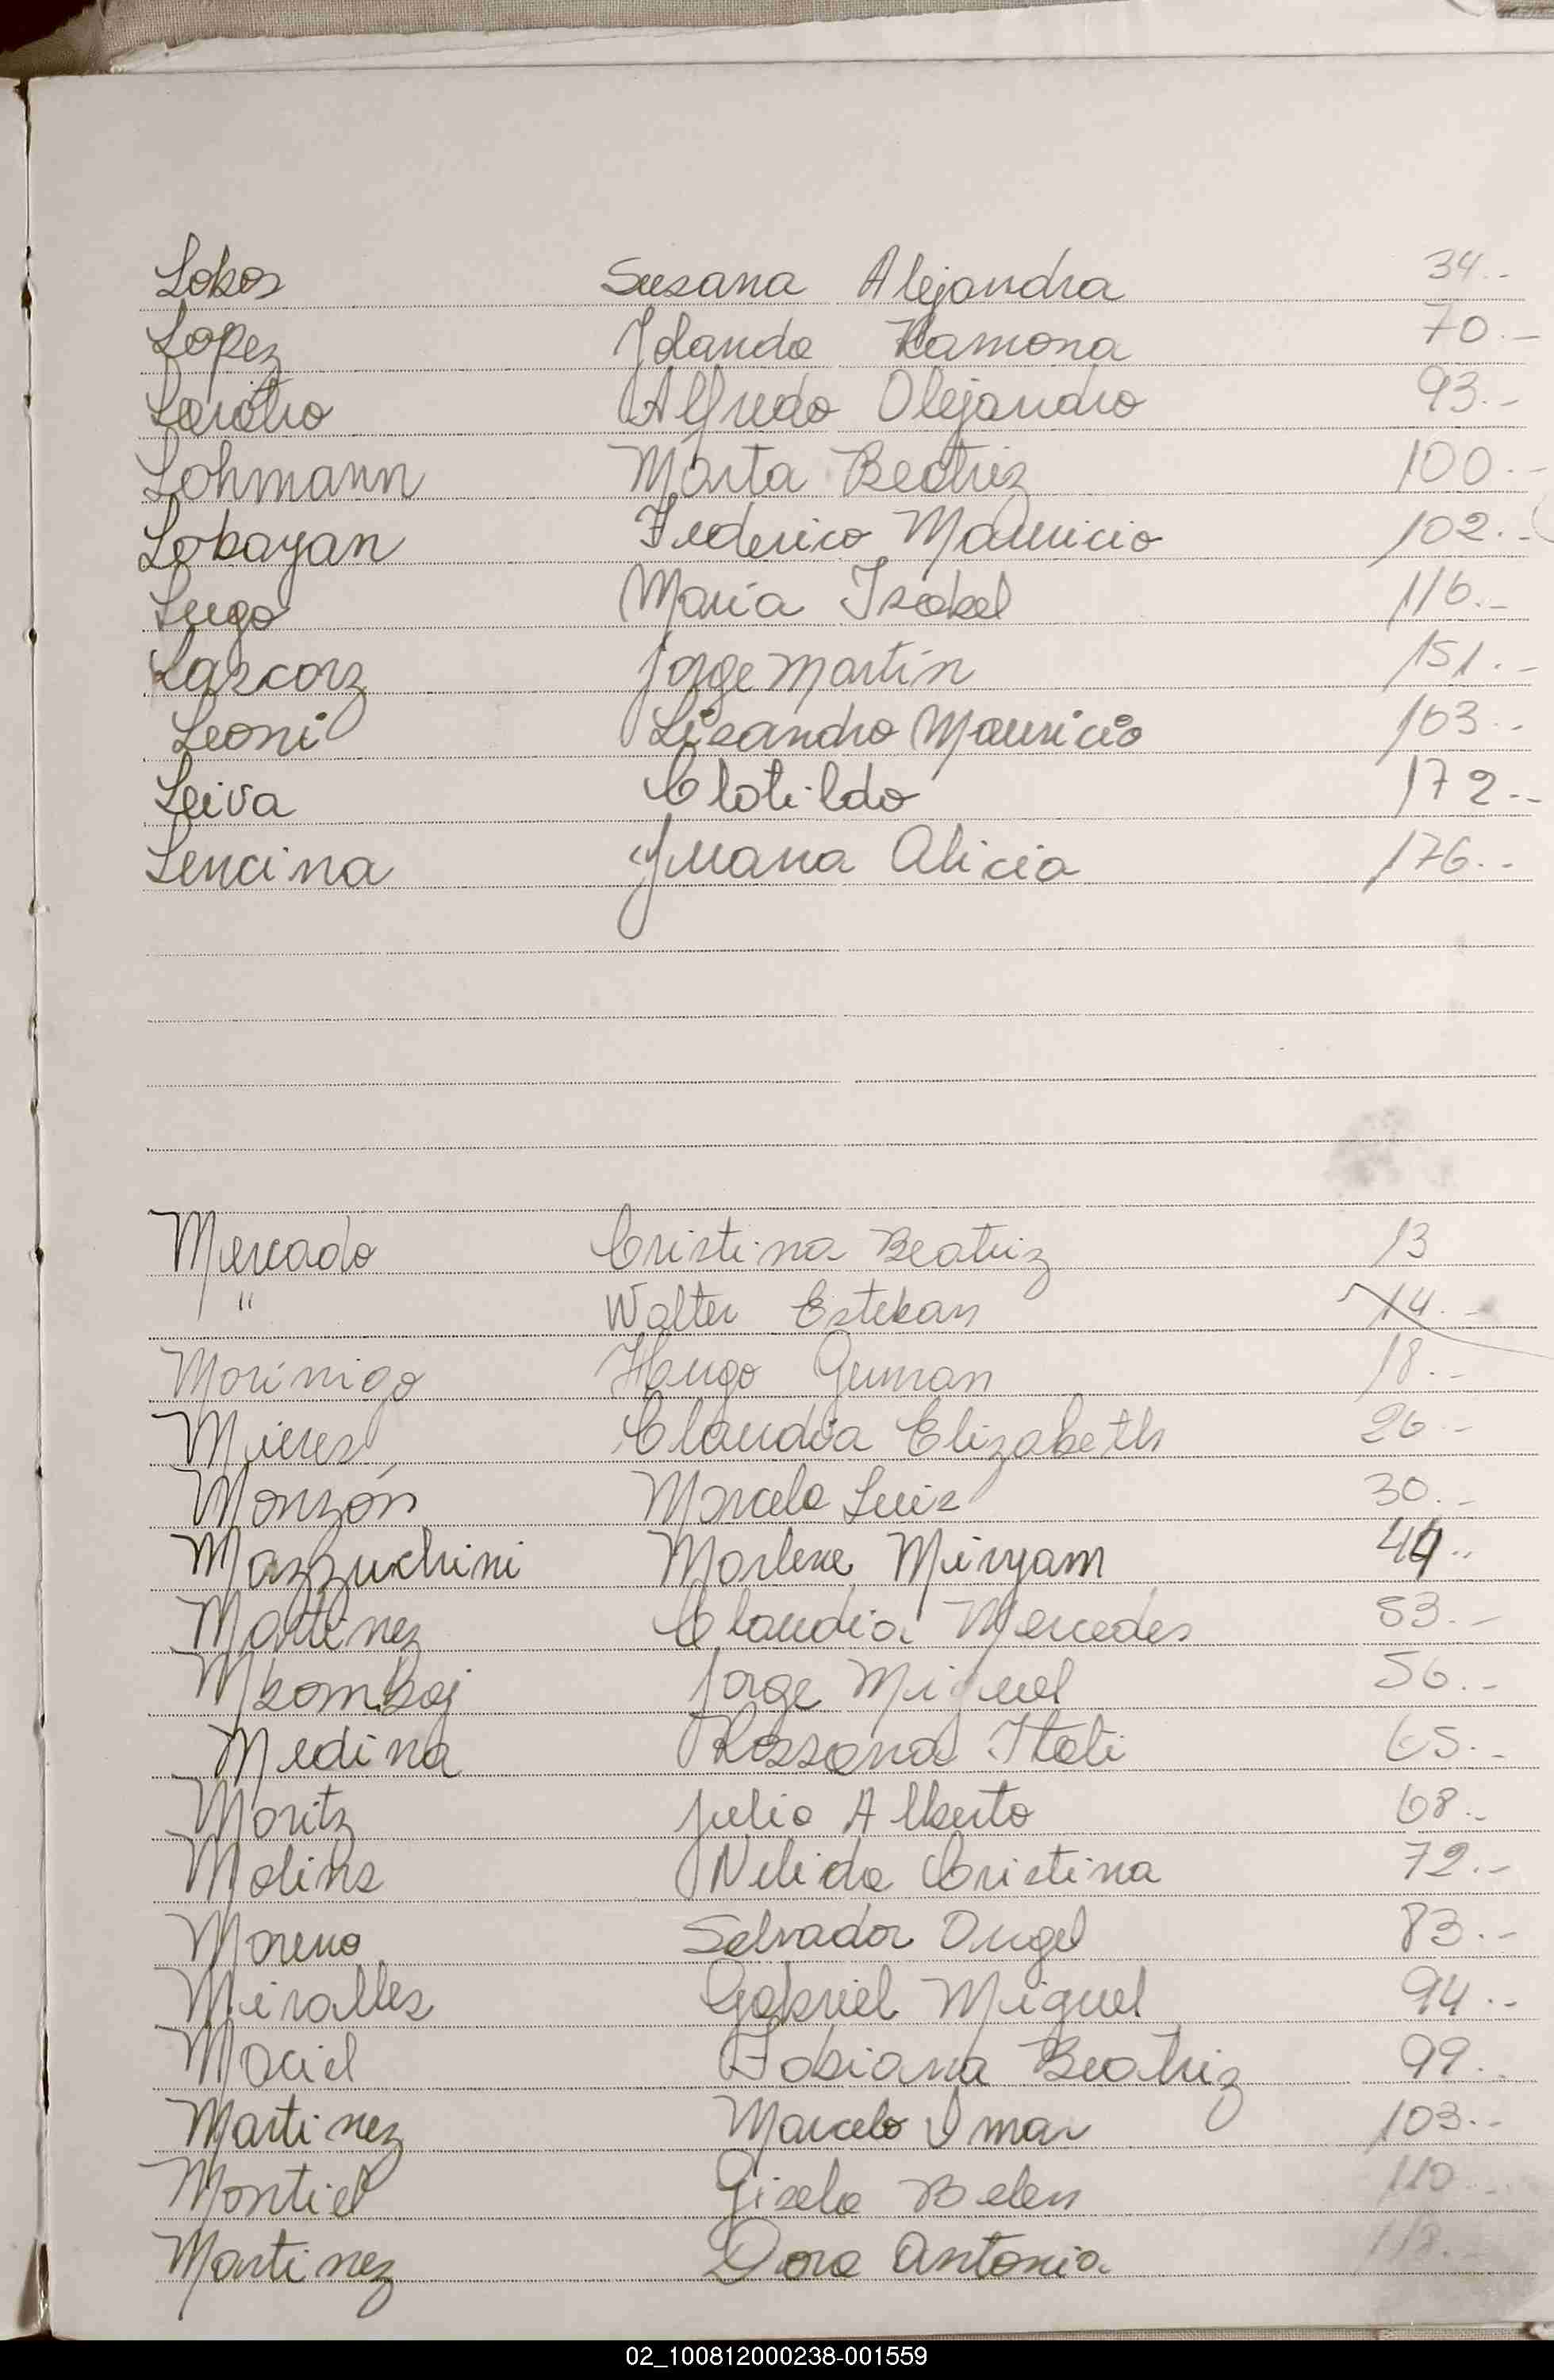 Lobos Susana Alejandra 34.-
Lopez Jolanda Ramona 70.-
Alfredo Alejandro 93.-
Lohmann Marta Beatriz 100.-
Lobayan Federico Mauricio 102.-
Lugo Maria Isabel 116.-
Lascorz Jorge Martín 151.-
Leoni Lisandro Mauricio 163.-
Leiva Clotildo 172.-
Lencina Juana Alicia 176.-
Mercado Cristina Beatriz 13
" Walter Esteban 14.-
Morinigo Hugo German 18.-
Mieres Claudia Elizabeth 26.-
Monzón Marcelo Luis 30.-
Mazzuchini Marlene Miryam 44.-
Martinez Claudia Mercedes 53.-
Jorge Miguel 56.-
Medina Rossana Itati 65.-
Moritz Julio Alberto 68.-
Molins Nelida Cristina 72.-
Moreno Salvador Angel 83.-
Miralles Gabriel Miguel 94.-
Maciel Fabiana Beatriz 99.-
Martinez Marcelo Omar 103.-
Montiel Gisela Belen 110.-
Martinez Dora Antonia
02_100812000238-001559